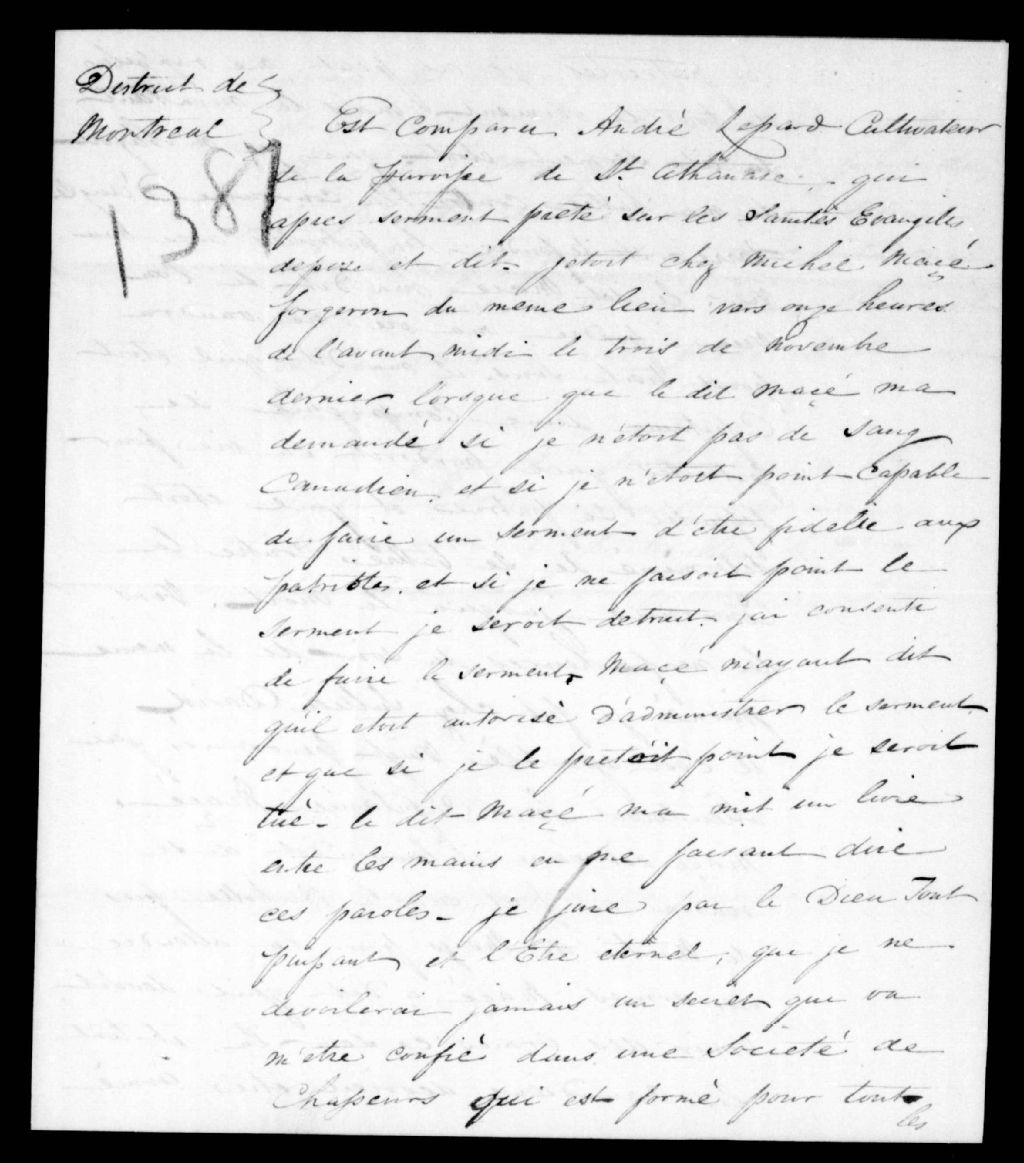 District de
Montreal
1387
Est Comparu André Lepard Cultivateur
de la paroisse de St. Athanase, qui
apres serment preté sur les Saintes Evangiles
depose et dit - jetoit chez Michel Maçé
forgeron du meme lieu vers onze heures
de l'avant midi le trois de novembre
dernier lorsque que le dit Maçé ma
demandé si je n'etoit pas de sang
Canadien, et si je n'etoit point Capable
de faire un serment d'etre fidelle aux
patriotes. et si je ne faisoit point le
serment je seroit detruit. jai consenti
de faire le serment, Maçé m'ayant dit
quil etoit autorisé d'administrer le serment.
et que si je le pretoit point je seroit
tué - le dit Maçé ma mit un livre
entre les mains en me faisant dire
ces paroles - je jure par le Dieu Tout
puissant et l'Etre eternel, que je ne
devoilerai jamais un secret que va
m'etre confié dans une Societé de
Chasseurs qui est formé pour tout
les